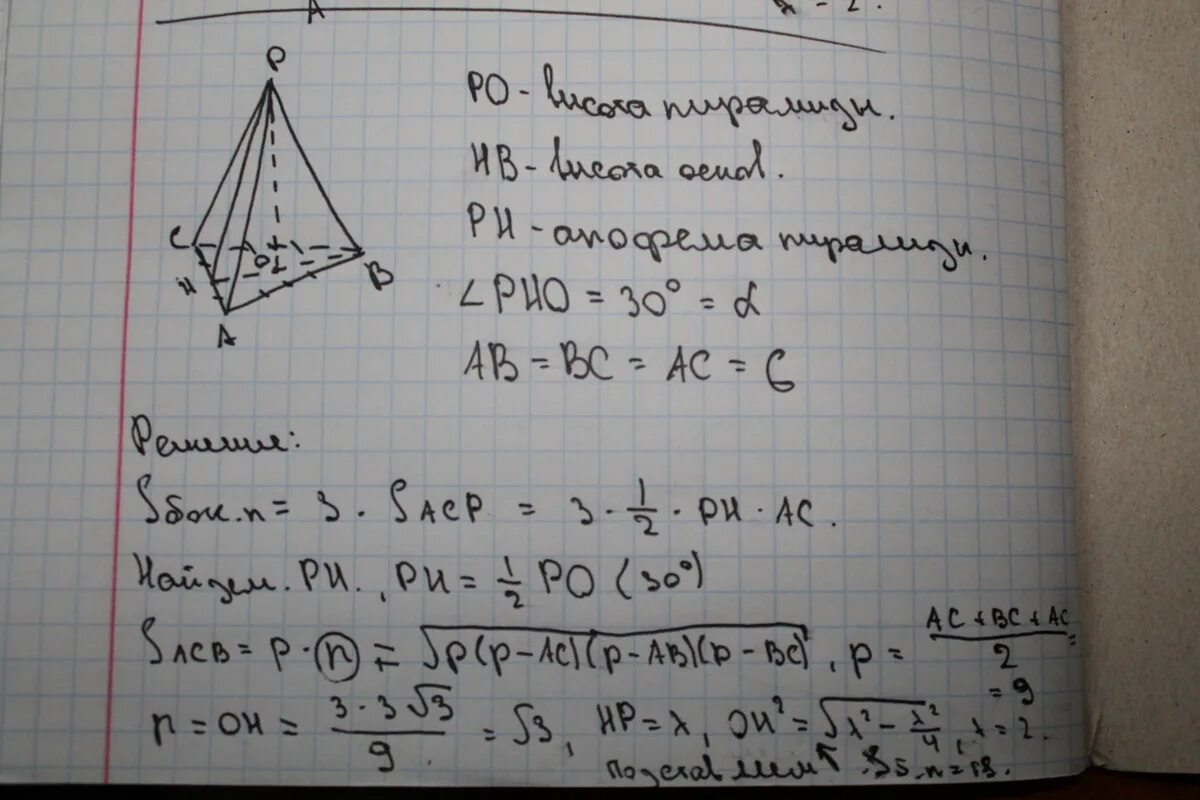 A
P
C
O
B
H
A
PO - висота пирамиды.
HB - висота основ.
PH - апофема пирамиды.
∠PHO = 30° = α
AB = BC = AC = 6
Решение:
Sбок.п = 3 · SACP = 3 · 1/2 · PH · AC.
Найдем PH., PH = 1/2 PO (30°)
SACB = p · n = √p(p-AC)(p-AB)(p-BC), p = AC + BC + AC / 2 = 9
n = OH = 3·3√3 / 9 = √3, HP = x, OH² = √x² - x²/4, x = 2.
Подставляем